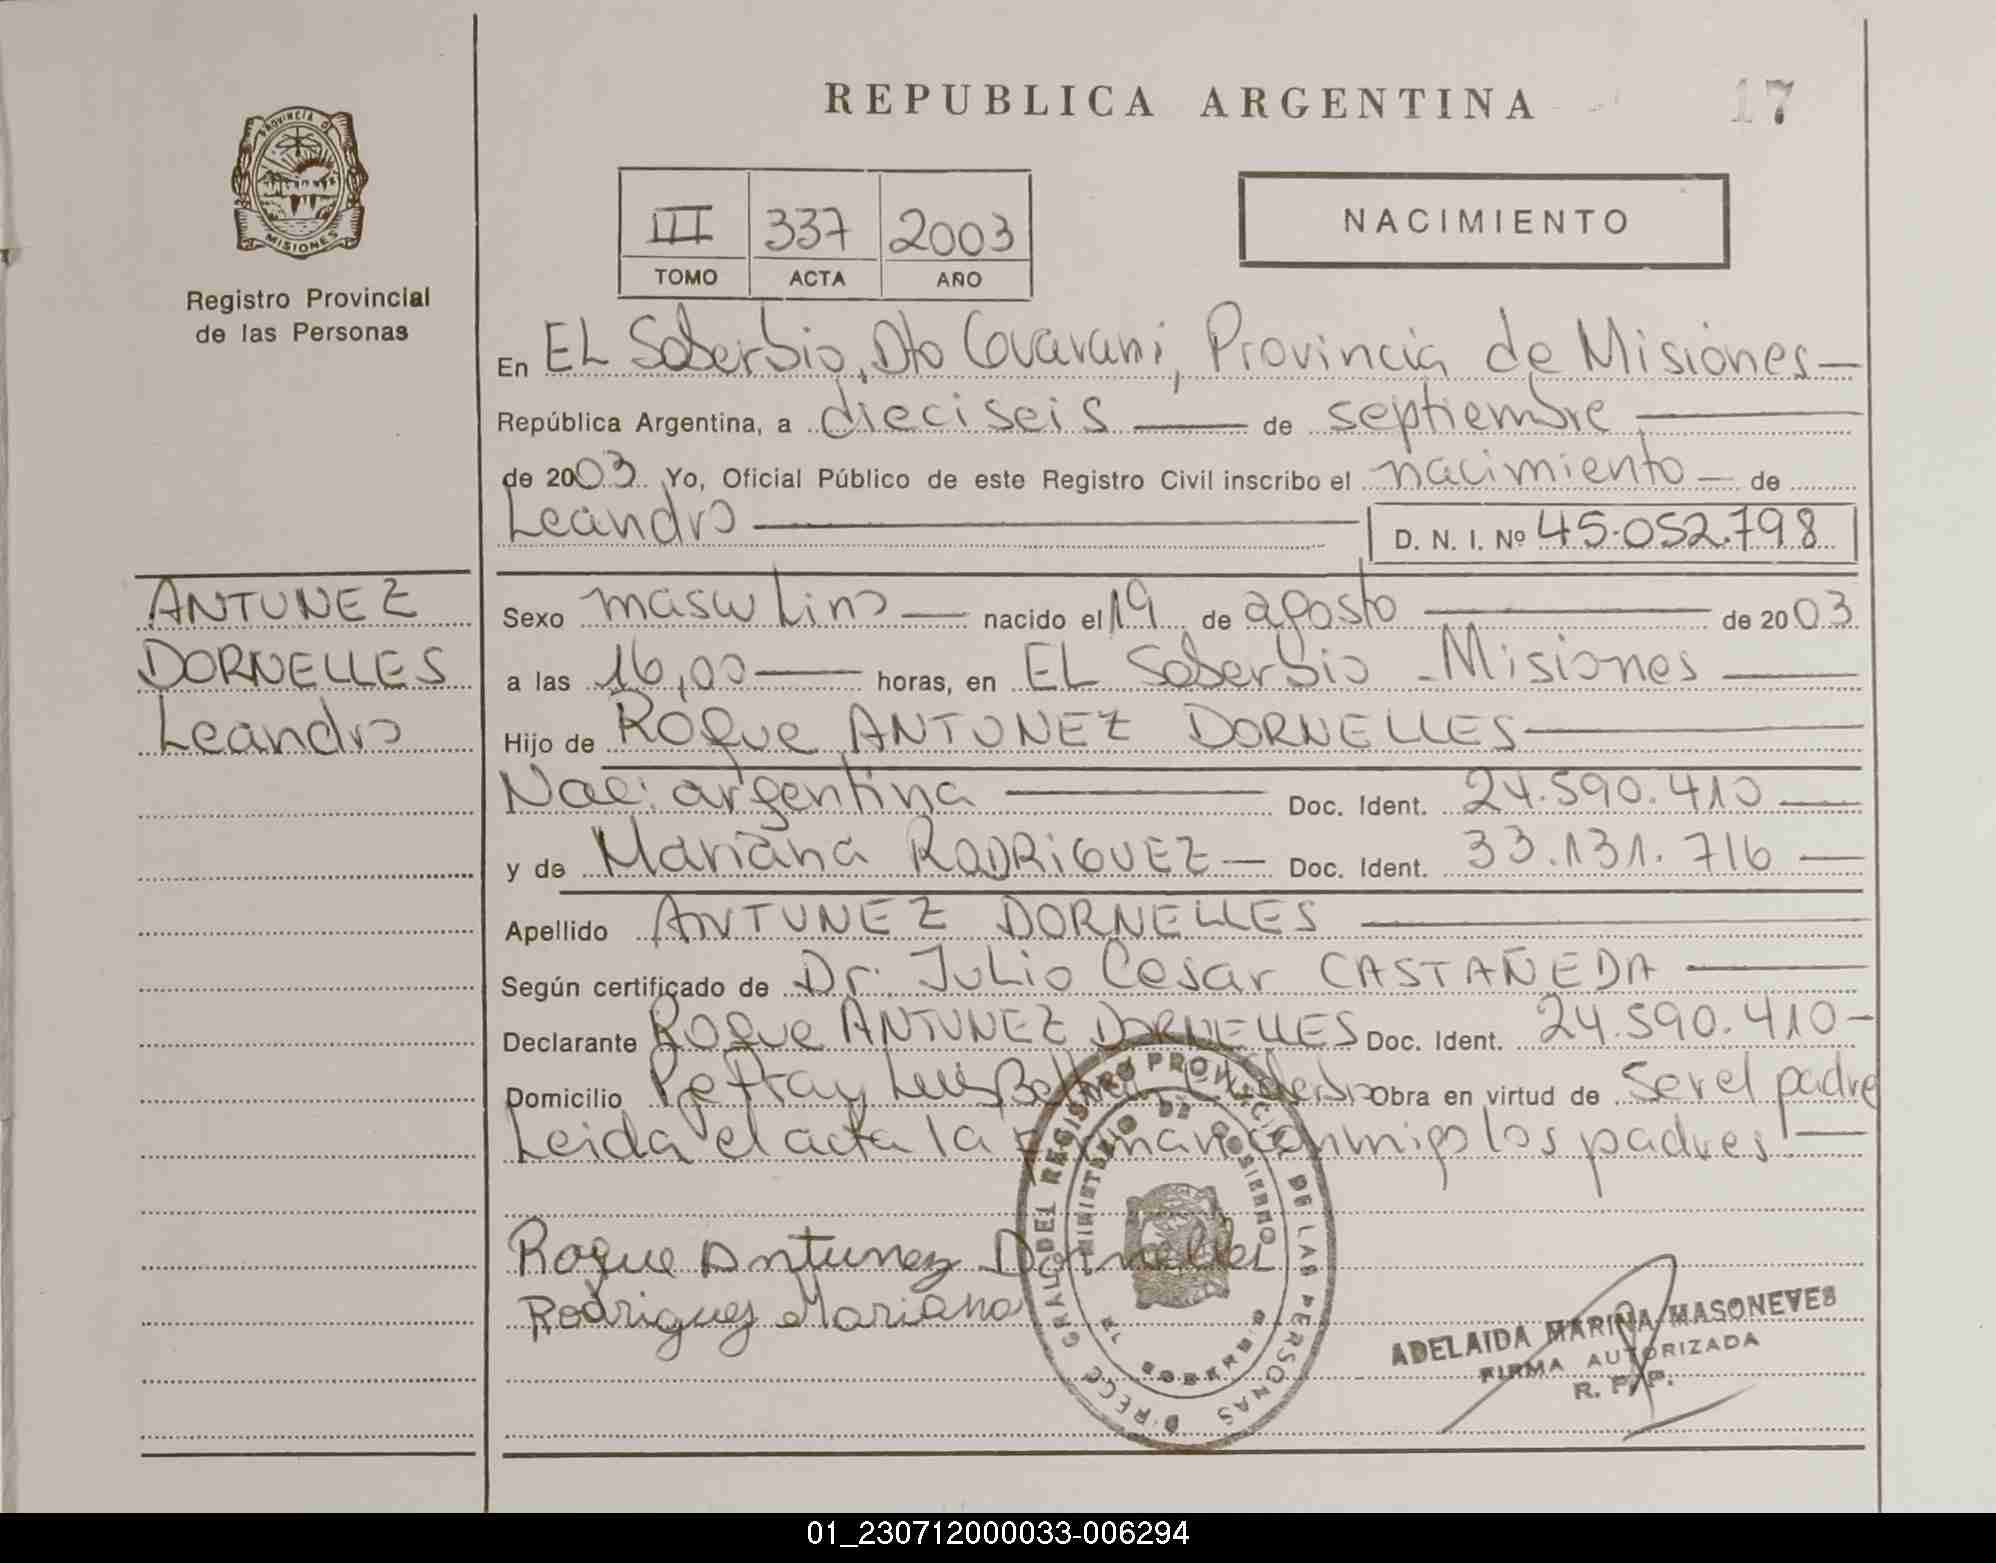 REPUBLICA ARGENTINA
17
PROVINCIA D
MISIONES
Registro Provincial
de las Personas
III 337 2003
TOMO ACTA AÑO
NACIMIENTO
En EL Soberbio, Dto Guarani, Provincia de Misiones
República Argentina, a dieciseis de septiembre
de 2003 Yo, Oficial Público de este Registro Civil inscribo el nacimiento de
Leandro D. N. I. Nº 45.052.798
ANTUNEZ
DORNELLES
Leandro
Sexo masculino nacido el 19 de agosto de 2003
a las 16,00 horas, en EL Soberbio - Misiones
Hijo de Roque ANTUNEZ DORNELLES
Nac: argentina Doc. Ident. 24.590.410
y de Mariana RODRIGUEZ Doc. Ident. 33.131.716
Apellido ANTUNEZ DORNELLES
Según certificado de Dr. Julio Cesar CASTAÑEDA
Declarante Roque ANTUNEZ DORNELLES Doc. Ident. 24.590.410
Domicilio Luis Obra en virtud de Ser el padre
Leida el acta la firman conmigo los padres
Roque Antunez Dornelles
Rodriguez Mariana
DIRECC GRAL DEL REGISTRO PROVINCIAL DE LAS PERSONAS
MINISTERIO DE GOBIERNO
ADELAIDA MARINA MASONEVES
FIRMA AUTORIZADA
R. P. P.
01_230712000033-006294